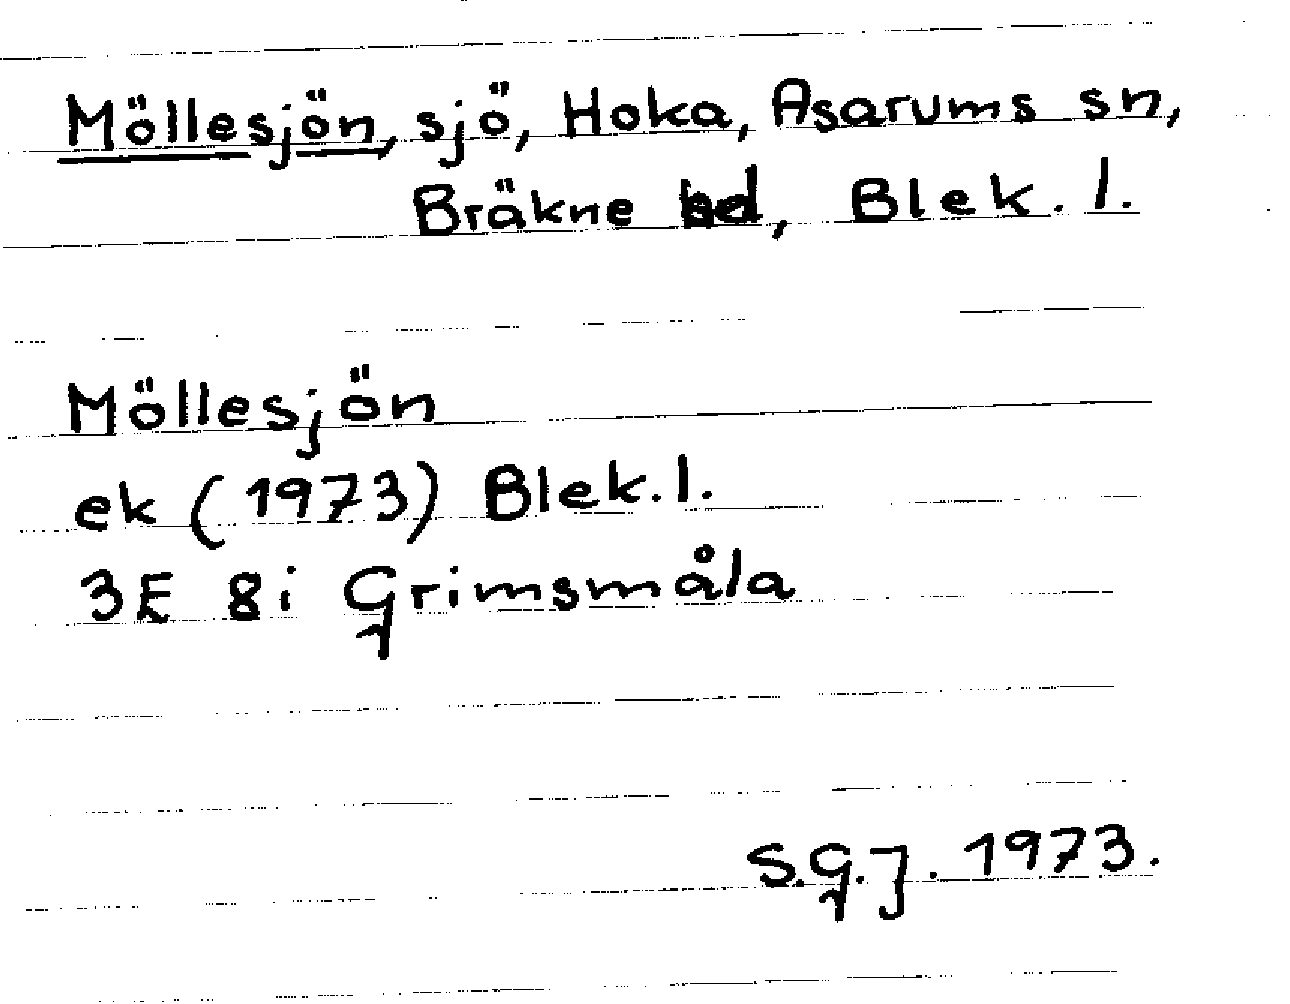 Möllesjön, sjö, Hoka, Asarums sn,
Bräkne hd, Blek. l.
Möllesjön
ek (1973) Blek. l.
3E 8i Grimsmåla
S.G.J. 1973.